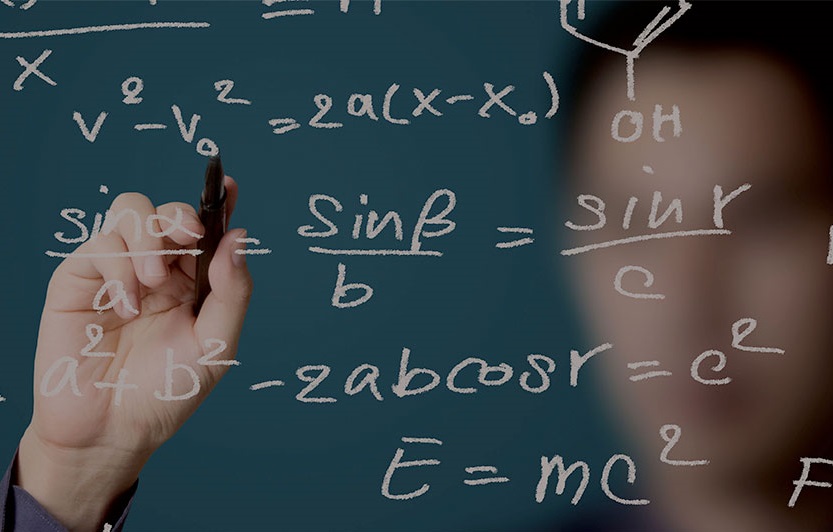 x
OH
v² - v₀² = 2a(x-x₀)
sinα/a = sinβ/b = sin r/c
a² + b² - 2ab cos r = c²
E = mc²
F